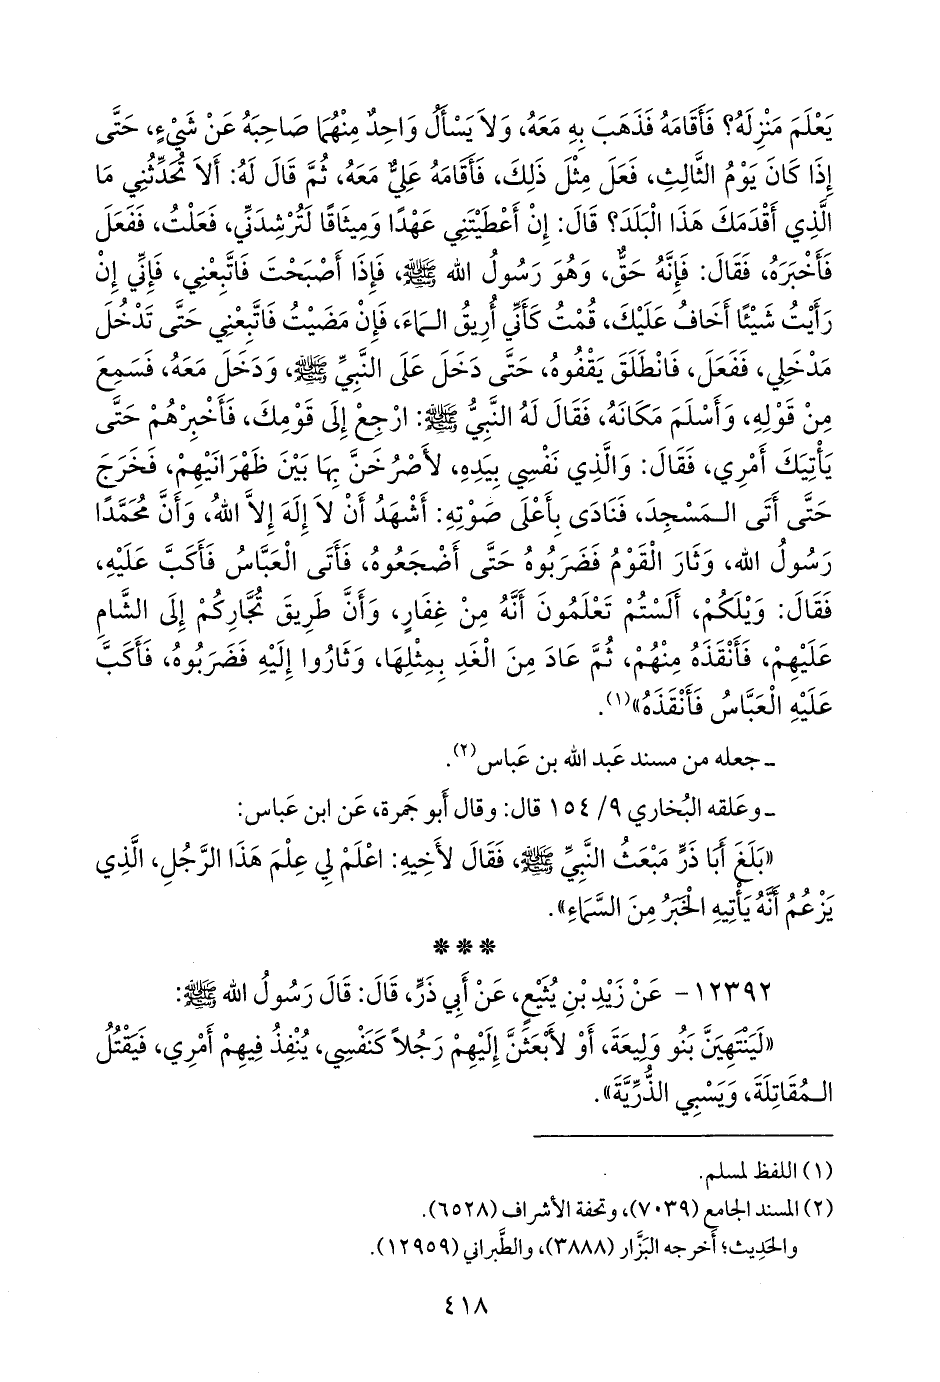 يَعْلَمَ مَنْزِلَهُ؟ فَأَقَامَهُ فَذَهَبَ بِهِ مَعَهُ، وَلاَ يَسْأَلُ وَاحِدٌ مِنْهُمَا صَاحِبَهُ عَنْ شَيْءٍ، حَتَّى
إِذَا كَانَ يَوْمُ الثَّالِثِ، فَعَلَ مِثْلَ ذَلِكَ، فَأَقَامَهُ عَلِيٌّ مَعَهُ، ثُمَّ قَالَ لَهُ: أَلاَ تُحَدِّثُنِي مَا
الَّذِي أَقْدَمَكَ هَذَا الْبَلَدَ؟ قَالَ: إِنْ أَعْطَيْتَنِي عَهْدًا وَمِيثَاقًا لَتُرْشِدَنِّي، فَعَلْتُ، فَفَعَلَ
فَأَخْبَرَهُ، فَقَالَ: فَإِنَّهُ حَقٌّ، وَهُوَ رَسُولُ الله ﷺ، فَإِذَا أَصْبَحْتَ فَاتَّبِعْنِي، فَإِنِّي إِنْ
رَأَيْتُ شَيْئًا أَخَافُ عَلَيْكَ، قُمْتُ كَأَنِّي أُرِيقُ الـمَاءَ، فَإِنْ مَضَيْتُ فَاتَّبِعْنِي حَتَّى تَدْخُلَ
مَدْخَلِي، فَفَعَلَ، فَانْطَلَقَ يَقْفُوهُ، حَتَّى دَخَلَ عَلَى النَّبِيِّ ﷺ، وَدَخَلَ مَعَهُ، فَسَمِعَ
مِنْ قَوْلِهِ، وَأَسْلَمَ مَكَانَهُ، فَقَالَ لَهُ النَّبِيُّ ﷺ: ارْجِعْ إِلَى قَوْمِكَ، فَأَخْبِرْهُمْ حَتَّى
يَأْتِيَكَ أَمْرِي، فَقَالَ: وَالَّذِي نَفْسِي بِيَدِهِ، لأَصْرُخَنَّ بِهَا بَيْنَ ظَهْرَانَيْهِمْ، فَخَرَجَ
حَتَّى أَتَى الـمَسْجِدَ، فَنَادَى بِأَعْلَى صَوْتِهِ: أَشْهَدُ أَنْ لاَ إِلَهَ إِلاَّ اللهُ، وَأَنَّ مُحَمَّدًا
رَسُولُ الله، وَثَارَ الْقَوْمُ فَضَرَبُوهُ حَتَّى أَضْجَعُوهُ، فَأَتَى الْعَبَّاسُ فَأَكَبَّ عَلَيْهِ،
فَقَالَ: وَيْلَكُمْ، أَلَسْتُمْ تَعْلَمُونَ أَنَّهُ مِنْ غِفَارٍ، وَأَنَّ طَرِيقَ تُجَّارِكُمْ إِلَى الشَّامِ
عَلَيْهِمْ، فَأَنْقَذَهُ مِنْهُمْ، ثُمَّ عَادَ مِنَ الْغَدِ بِمِثْلِهَا، وَثَارُوا إِلَيْهِ فَضَرَبُوهُ، فَأَكَبَّ
عَلَيْهِ الْعَبَّاسُ فَأَنْقَذَهُ»(١).
ـ جعله من مسند عَبد الله بن عَباس(٢).
ـ وعَلقه البُخاري ٩/ ١٥٤ قال: وقال أَبو جَمرة، عَن ابن عَباس:
«بَلَغَ أَبَا ذَرٍّ مَبْعَثُ النَّبِيِّ ﷺ، فَقَالَ لأَخِيهِ: اعْلَمْ لِي عِلْمَ هَذَا الرَّجُلِ، الَّذِي
يَزْعُمُ أَنَّهُ يَأْتِيهِ الْخَبَرُ مِنَ السَّمَاءِ».
***
١٢٣٩٢- عَنْ زَيْدِ بْنِ يُثَيْعٍ، عَنْ أَبِي ذَرٍّ، قَالَ: قَالَ رَسُولُ الله ﷺ:
«لَيَنْتَهِيَنَّ بَنُو وَلِيعَةَ، أَوْ لأَبْعَثَنَّ إِلَيْهِمْ رَجُلاً كَنَفْسِي، يُنْفِذُ فِيهِمْ أَمْرِي، فَيَقْتُلُ
الـمُقَاتِلَةَ، وَيَسْبِي الذُّرِّيَّةَ».
(١) اللفظ لمسلم.
(٢) المسند الجامع (٧٠٣٩)، وتحفة الأشراف (٦٥٢٨).
والحَدِيث؛ أَخرجه البَزَّار (٣٨٨٨)، والطَّبراني (١٢٩٥٩).
٤١٨